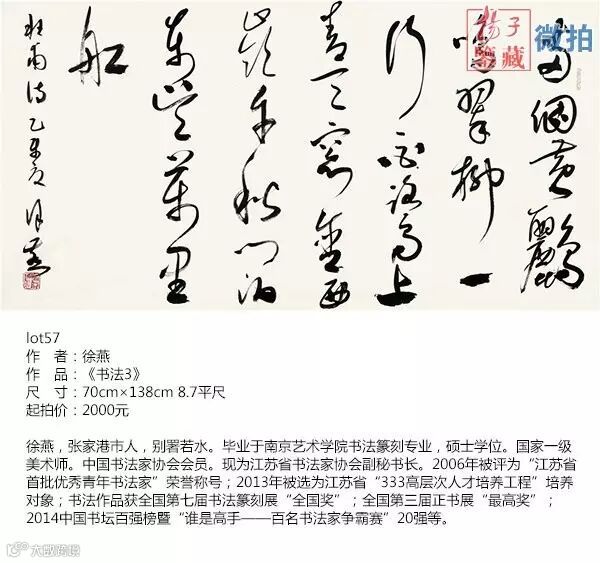 揚子
鑒藏
微拍
兩個黄鸝
鳴翠柳一
行白鷺上
青天窗含西
嶺千秋門泊
東吴萬里
船
杜甫诗乙未夏徐燕
lot57
作 者：徐燕
作 品：《书法3》
尺 寸：70cm×138cm 8.7平尺
起拍价：2000元
徐燕，张家港市人，别署若水。毕业于南京艺术学院书法篆刻专业，硕士学位。国家一级
美术师。中国书法家协会会员。现为江苏省书法家协会副秘书长。2006年被评为“江苏省
首批优秀青年书法家”荣誉称号；2013年被选为江苏省“333高层次人才培养工程”培养
对象；书法作品获全国第七届书法篆刻展“全国奖”；全国第三届正书展“最高奖”；
2014中国书坛百强榜暨“谁是高手——百名书法家争霸赛”20强等。
大数跨境